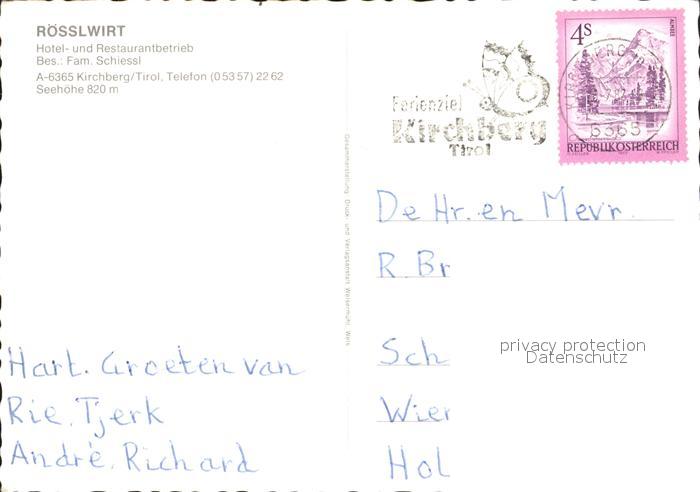 RÖSSLWIRT
Hotel- und Restaurantbetrieb
Bes.: Fam. Schiessl
A-6365 Kirchberg/Tirol, Telefon (0 53 57) 22 62
Seehöhe 820 m
Hart. Groeten van
Rie, Tjerk
André, Richard
Gesamtherstellung: Druck- und Verlagsanstalt Welsermühl, Wels
Ferienziel
Kirchberg
Tirol
4S
ALMSEE
6365
REPUBLIK ÖSTERREICH
De Hr. en Mevr.
R. Br
Sch
Wier
Hol
privacy protection
Datenschutz